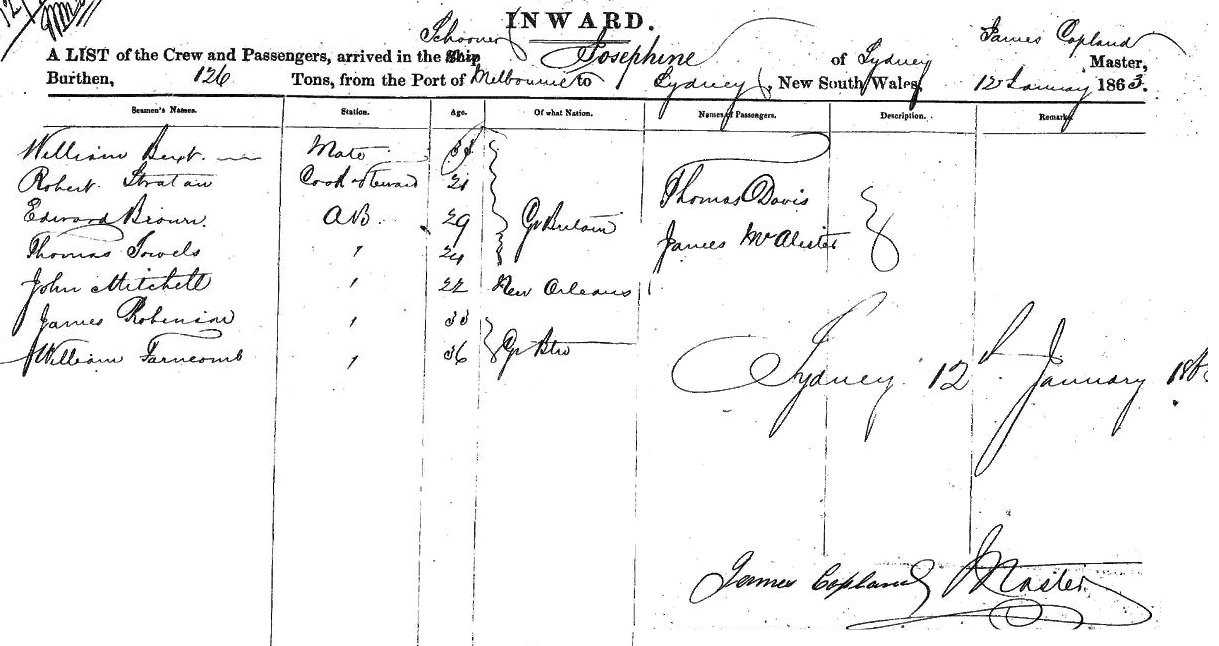 INWARD.
Schooner
James Copland
A LIST of the Crew and Passengers, arrived in the Ship Josephine of Sydney Master,
Burthen, 126 Tons, from the Port of Melbourne to Sydney, New South Wales, 12 January 1863.
Seamen's Names. Station. Age. Of what Nation. Names of Passengers. Description. Remarks
William Mate
Robert Cook Steward 21 Thomas Davis
Edward Brown. AB. 29 Gt Britain
Thomas Towels " 24 James McAlister
John Mitchell " 22 New Orleans
James Robinson " 33
William Farncomb " 36 Gt Btn
Sydney 12th January
James Copland Master